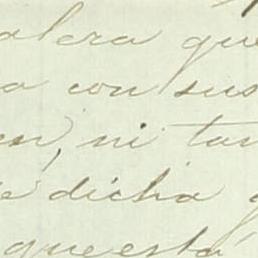 alera que
a con sus
en, ni tan
e dicha
que está